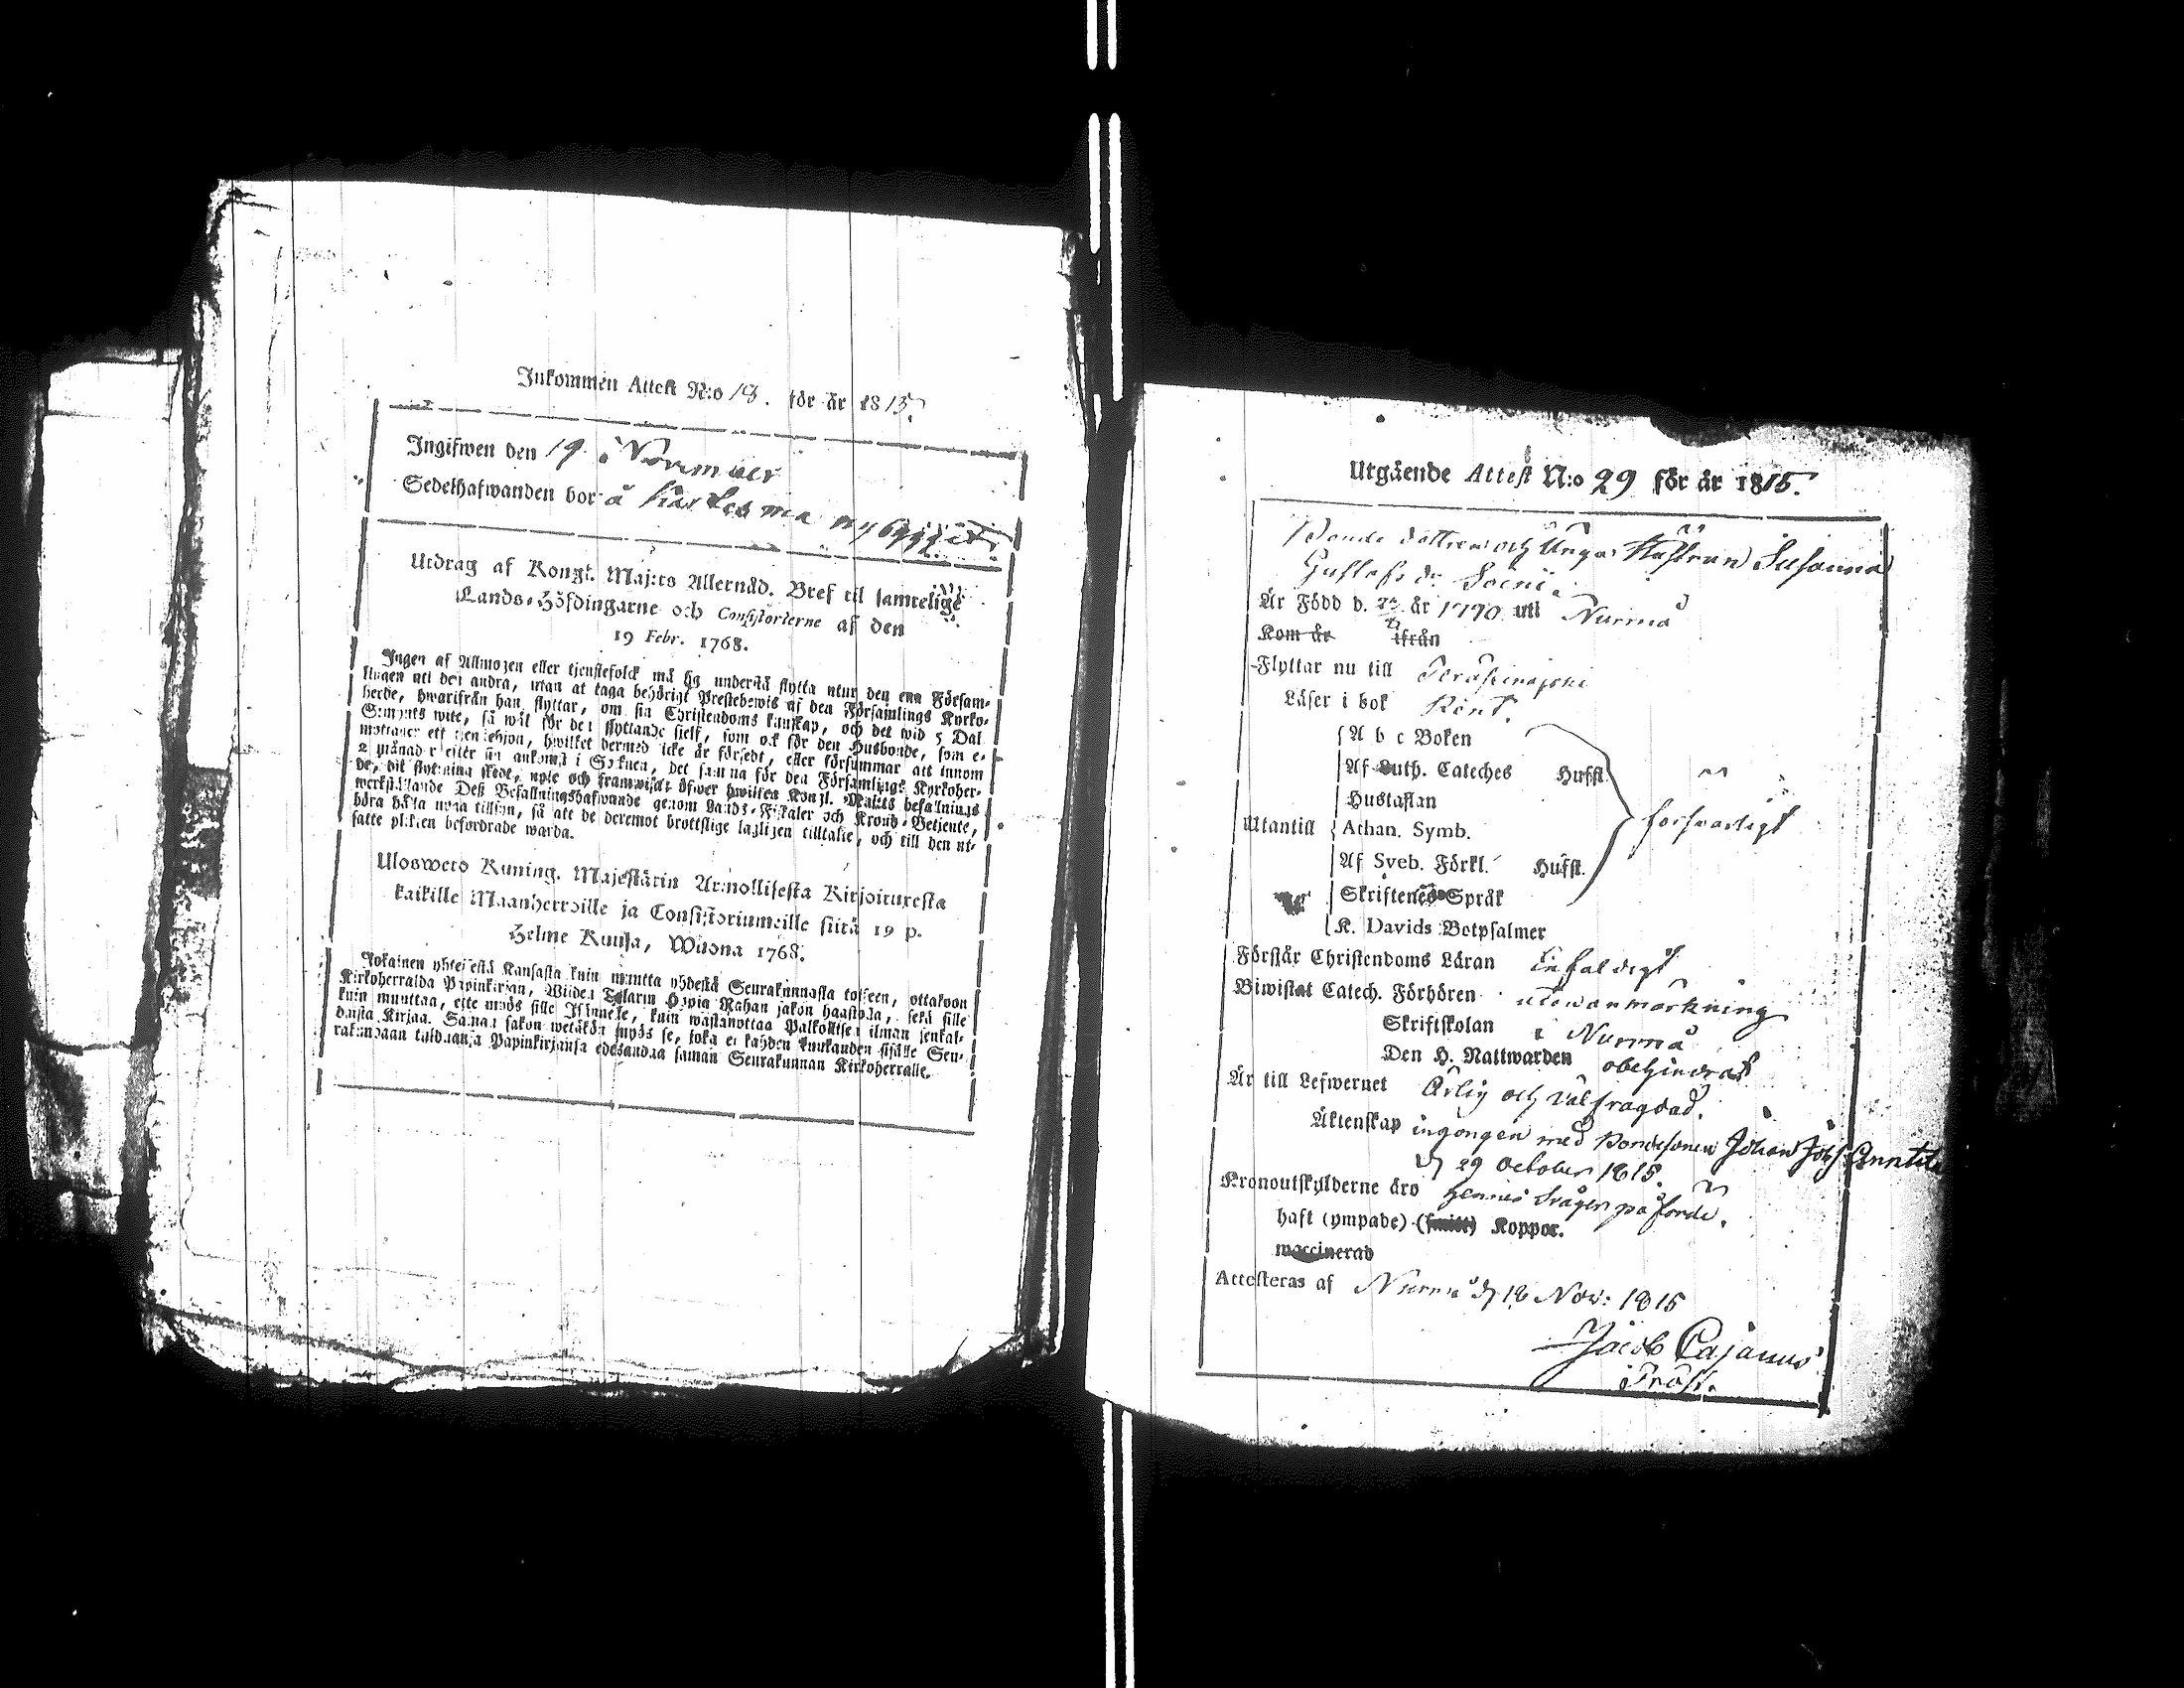 Inkommen Attest N:o 18. för år 1815.
Ingifwen den 19 November
Sedelhafwanden bor å nybygget
Utdrag af Kongl. Maj:ts Allernåd. Bref til samtelige
Lands-Höfdingarne och Consistorierne af den
19 Febr. 1768.
Ingen af Allmogen eller tjenstefolck må sig understå flytta utur den ena Försam-
lingen uti den andra, utan at taga behörigt Prestebewis af den Församlings Kyrko-
herde, hwarifrån han flyttar, om sin Christendoms kunskap, och det wid 5 Dal
Si mynts wite, så wäl för den flyttande sielf, som ock för den Husbonde, som e-
mottager ett tjenstehjon, hwilket dermed icke är försedt, eller försummar att innom
2 månader efter sin ankomst i Soknen, det samma för den Församlings Kyrkoher-
de, dit flyttning skedt, upte och framwisa; öfwer hwilket Konzl. Maj:ts befallnings
werkställande Deß Befallningshafwande genom Lands-Fiskaler och Krono-Betjente,
böra hålla noga tillsyn, så att de deremot brottslige lagligen tilltalte, och till den ut-
satte plikten befordrade warda.
Ulosweto Kuning. Majestärin Armollisesta Kirjoituxesta
kaikille Maanherroille ja Consistoriumeille siitä 19 p.
Helme Kuusa, Wuona 1768.
Jokainen yhteisestä Kansasta kuin muutta yhdestä Seurakunnasta toiseen, ottakoon
Kirkoherralda Papinkirjan, Wiiden Talarin Hopia Rahan sakon haastolla, sekä sille
kuin muuttaa, ette myös sille Isännelle, kuin wastanottaa Palkollisen ilman senkal-
daista Kirjaa. Saman sakon wetäkön myös se, joka ei kahden Kuukauden sisälle Seu-
rakundaan tulduansa Papinkirjansa edesandaa saman Seurakunnan Kirkoherralle.
Utgående Attest N:o 29 för år 1815.
Bonde dottren och Unga Hustrun Susanna
Gustafs dr Soini.
Är Född d. år 1770 uti Nurmo
Kom år ifrån
Flyttar nu till
Läser i bok Rent.
A b c Boken
Af Luth. Cateches Hufst.
Hustaflan
Utantill Athan. Symb. försvarligt
Af Sveb. Förkl. Hufst.
Skriftenes Språk
K. Davids Botpsalmer
Förstår Christendoms Läran Enfaldigt
Biwistat Catech. Förhören utan anmärkning
Skriftskolan i Nurmo
Den H. Nattwarden obehindrad
Är till Lefwernet Ärlig och välfrägdad.
Äktenskap ingången med Bondesonen Johan Johs
d 29 October 1815.
Kronoutskylderne äro hennes
haft (ympade) (smitt) Koppor.
waccinerad
Attesteras af Nurmo d 18 Nov: 1815
Jacob Cajanus
Pråst.